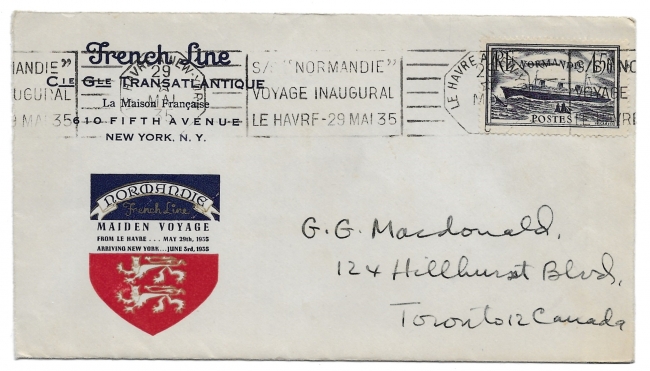 French Line
Cie Gle Transatlantique
La Maison Française
610 FIFTH AVENUE
NEW YORK, N. Y.
MANDIE"
UGURAL
9 MAI 35
LE HAVRE A NEW-YORK
29
MAI
35
S/S "NORMANDIE"
VOYAGE INAUGURAL
LE HAVRE-29 MAI 35
LE HAVRE A
RF
NORMANDIE
1f50
POSTES
S/S NO
VOYAGE
LE HAVRE
NORMANDIE
French Line
MAIDEN VOYAGE
FROM LE HAVRE . . . MAY 29th, 1935
ARRIVING NEW YORK...JUNE 3rd, 1935
G. G. Macdonald,
124 Hillhurst Blvd,
Toronto 12 Canada